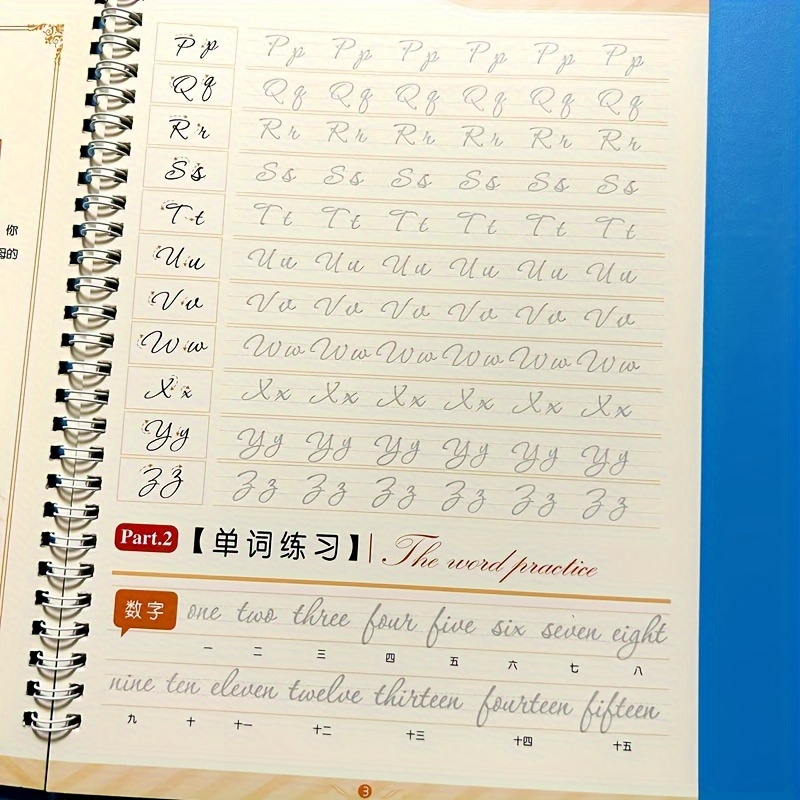 你
母的
Pp Pp Pp Pp Pp Pp Pp
Qq Qq Qq Qq Qq Qq Qq
Rr Rr Rr Rr Rr Rr Rr
Ss Ss Ss Ss Ss Ss Ss
Tt Tt Tt Tt Tt Tt Tt
Uu Uu Uu Uu Uu Uu Uu
Vv Vv Vv Vv Vv Vv Vv
Ww Ww Ww Ww Ww Ww Ww
Xx Xx Xx Xx Xx Xx Xx
Yy Yy Yy Yy Yy Yy Yy
Zz Zz Zz Zz Zz Zz Zz
Part.2 【单词练习】 The word practice
数字 one two three four five six seven eight
一 二 三 四 五 六 七 八
nine ten eleven twelve thirteen fourteen fifteen
九 十 十一 十二 十三 十四 十五
3